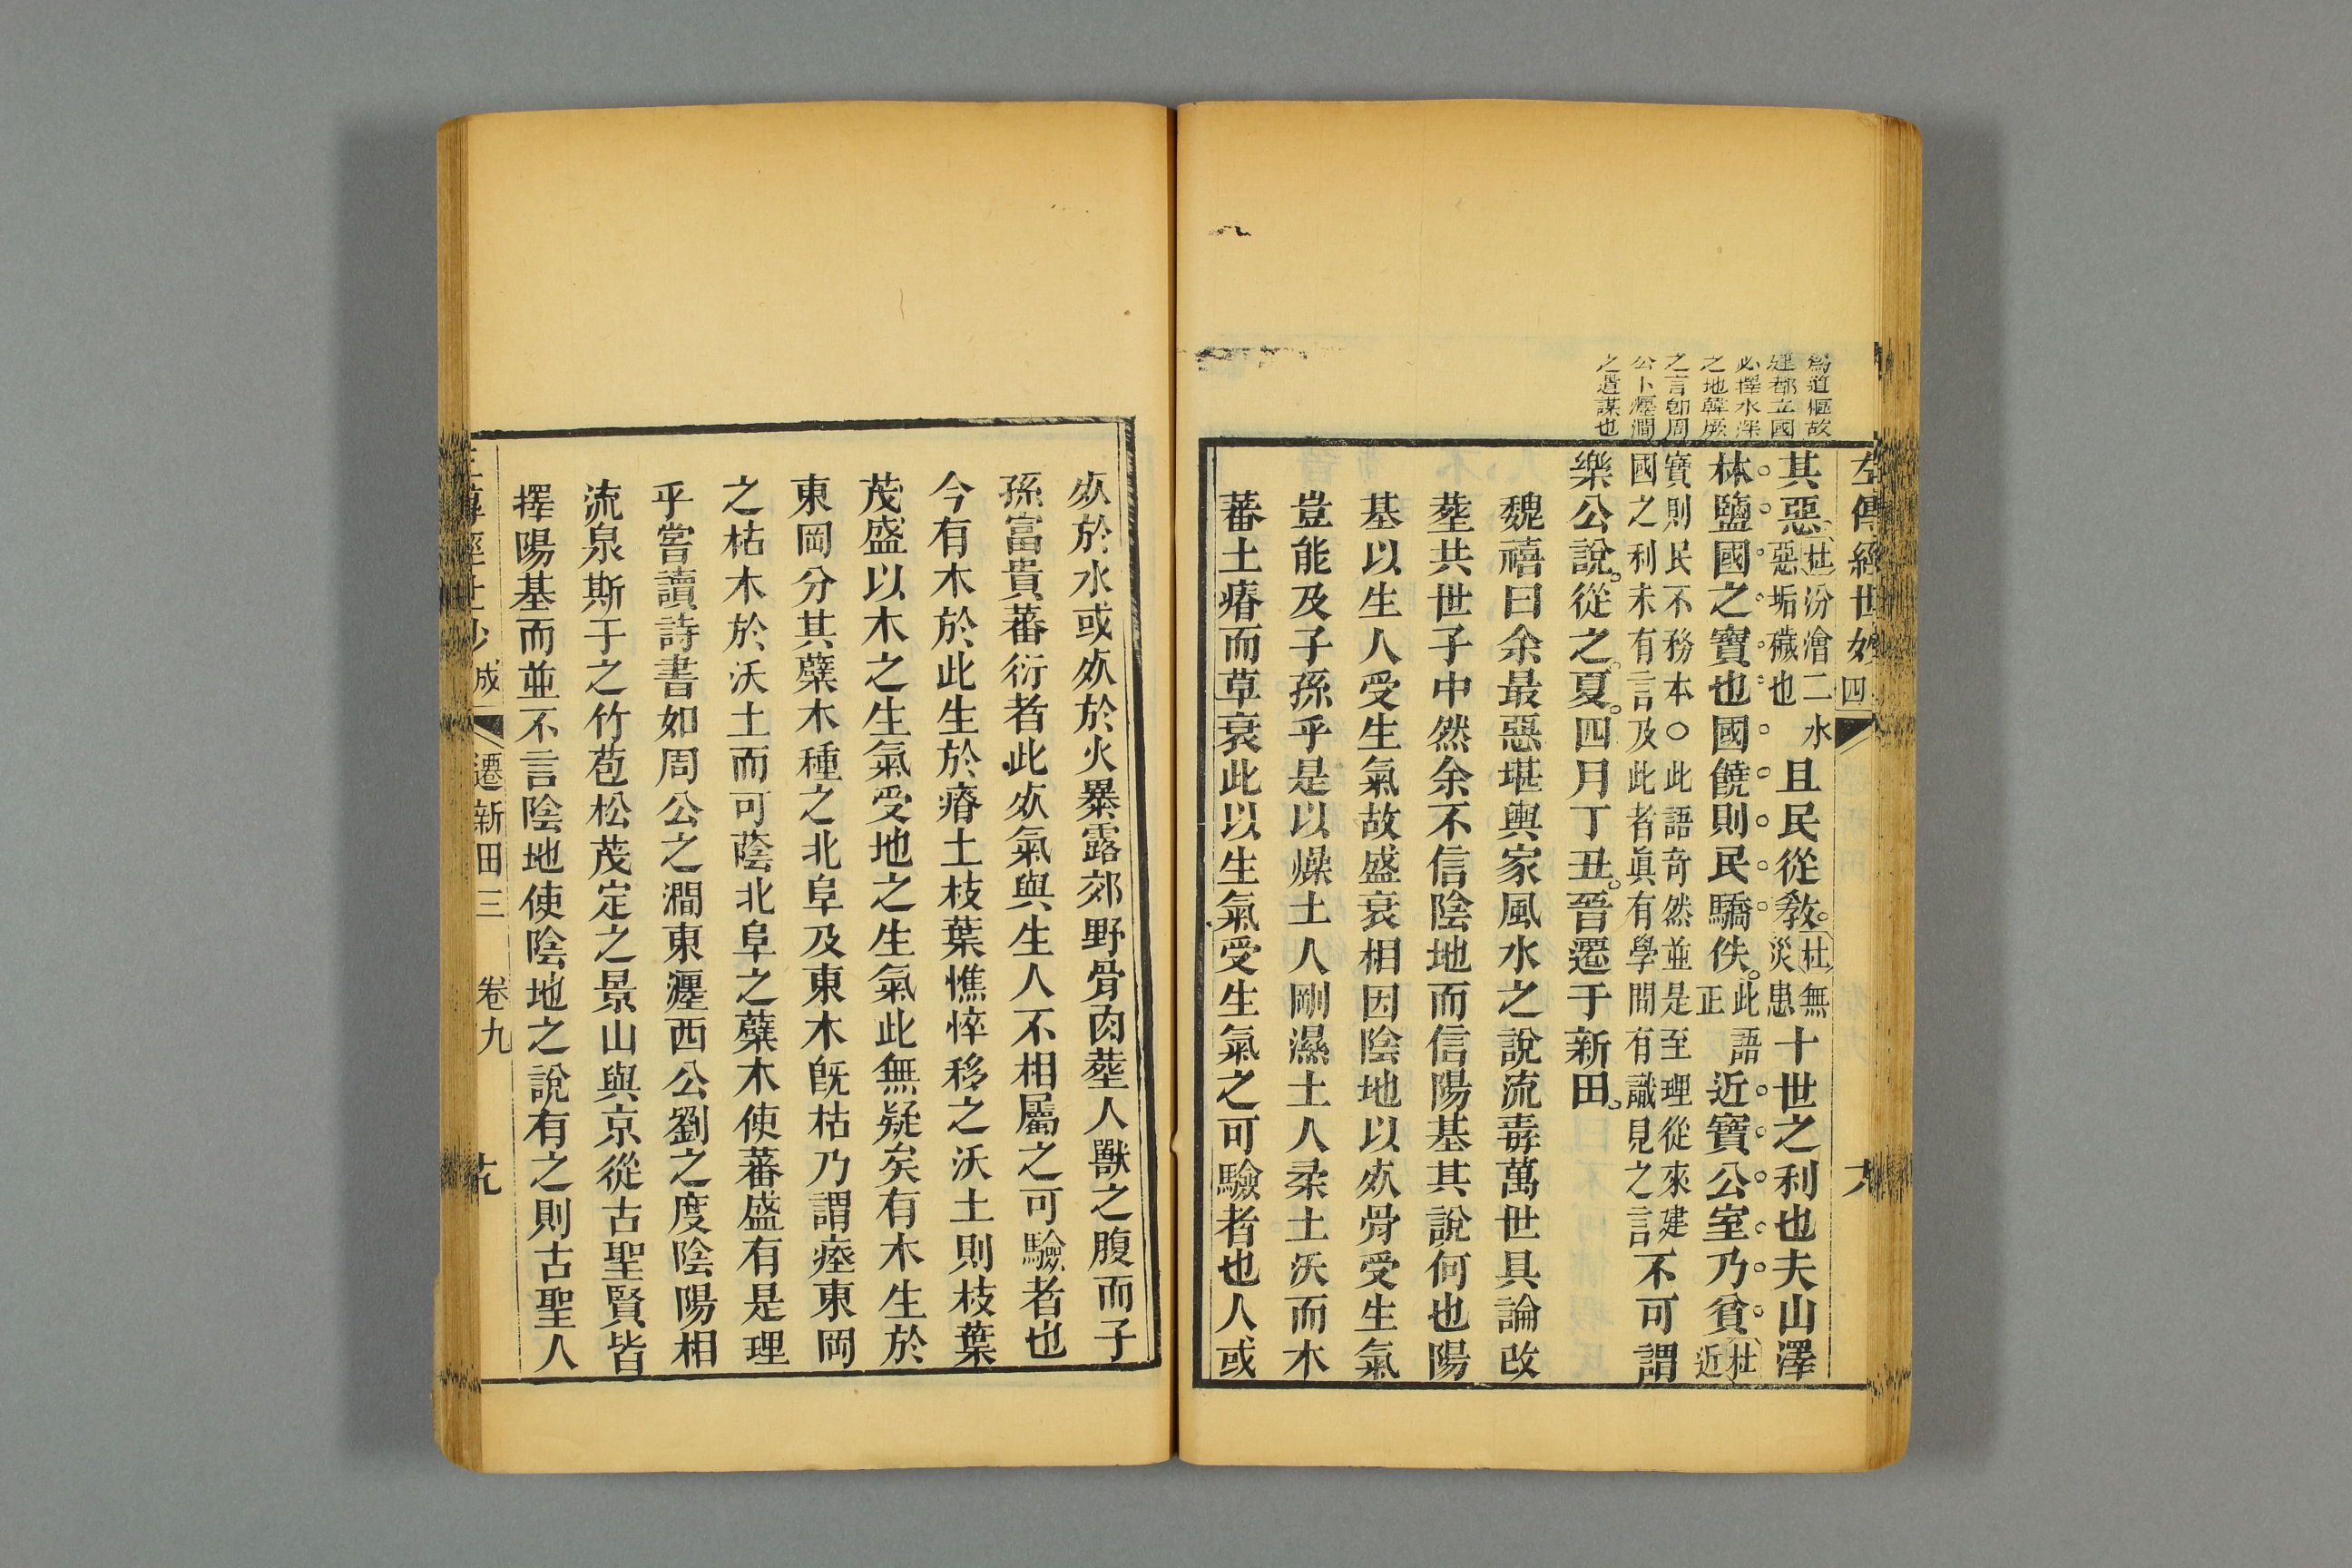 爲道樞故
建都立國
必擇水深
之地韓厥
之言卽周
公卜瀍澗
之遺謀也
左傳經世鈔 四
其惡杜汾澮二水惡垢穢也且民從敎杜無災患十世之利也夫山澤
林鹽國之寶也國饒則民驕佚此語正近寶公室乃貧杜近
寶則民不務本○此語奇然並是至理從來建國之利未有言及此者眞有學問有識見之言不可謂
樂公說從之夏四月丁丑晉遷于新田
魏禧曰余最惡堪輿家風水之說流毒萬世具論改
塟共世子中然余不信陰地而信陽基其說何也陽
基以生人受生氣故盛衰相因陰地以㱙骨受生氣
豈能及子孫乎是以燥土人剛濕土人柔土沃而木
蕃土瘠而草衰此以生氣受生氣之可驗者也人或
㱙於水或㱙於火暴露郊野骨肉塟人獸之腹而子
孫富貴蕃衍者此㱙氣與生人不相屬之可驗者也
今有木於此生於瘠土枝葉憔悴移之沃土則枝葉
茂盛以木之生氣受地之生氣此無疑矣有木生於
東岡分其蘖木種之北阜及東木旣枯乃謂瘞東岡
之枯木於沃土而可蔭北阜之蘖木使蕃盛有是理
乎嘗讀詩書如周公之澗東瀍西公劉之度陰陽相
流泉斯于之竹苞松茂定之景山與京從古聖賢皆
擇陽基而並不言陰地使陰地之說有之則古聖人
左傳經世鈔 成 遷新田三 卷九